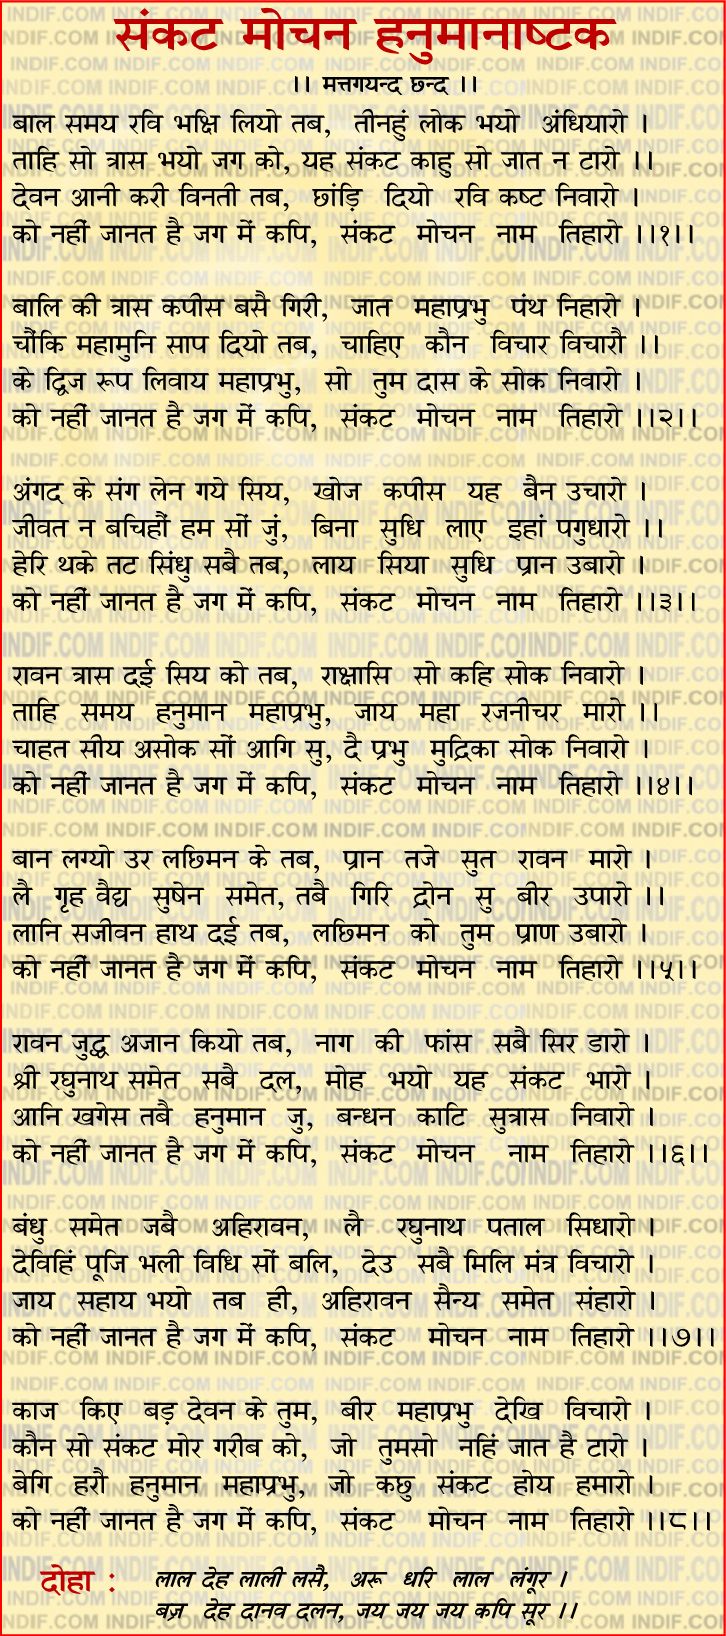 संकट मोचन हनुमानाष्टक
।। मत्तगयन्द छन्द ।।
बाल समय रवि भक्षि लियो तब, तीनहुं लोक भयो अंधियारो ।
ताहि सो त्रास भयो जग को, यह संकट काहु सो जात न टारो ।।
देवन आनी करी विनती तब, छांड़ि दियो रवि कष्ट निवारो ।
को नहीं जानत है जग में कपि, संकट मोचन नाम तिहारो ।।१।।
बालि की त्रास कपीस बसै गिरी, जात महाप्रभु पंथ निहारो ।
चौंकि महामुनि साप दियो तब, चाहिए कौन विचार विचारौ ।।
के द्विज रूप लिवाय महाप्रभु, सो तुम दास के सोक निवारो ।
को नहीं जानत है जग में कपि, संकट मोचन नाम तिहारो ।।२।।
अंगद के संग लेन गये सिय, खोज कपीस यह बैन उचारो ।
जीवत न बचिहौं हम सों जुं, बिना सुधि लाए इहां पगुधारो ।।
हेरि थके तट सिंधु सबै तब, लाय सिया सुधि प्रान उबारो ।
को नहीं जानत है जग में कपि, संकट मोचन नाम तिहारो ।।३।।
रावन त्रास दई सिय को तब, राक्षासि सो कहि सोक निवारो ।
ताहि समय हनुमान महाप्रभु, जाय महा रजनीचर मारो ।।
चाहत सीय असोक सों आगि सु, दै प्रभु मुद्रिका सोक निवारो ।
को नहीं जानत है जग में कपि, संकट मोचन नाम तिहारो ।।४।।
बान लग्यो उर लछिमन के तब, प्रान तजे सुत रावन मारो ।
लै गृह वैद्य सुषेन समेत, तबै गिरि द्रोन सु बीर उपारो ।।
लानि सजीवन हाथ दई तब, लछिमन को तुम प्राण उबारो ।
को नहीं जानत है जग में कपि, संकट मोचन नाम तिहारो ।।५।।
रावन जुद्ध अजान कियो तब, नाग की फांस सबै सिर डारो ।
श्री रघुनाथ समेत सबै दल, मोह भयो यह संकट भारो ।
आनि खगेस तबै हनुमान जु, बन्धन काटि सुत्रास निवारो ।
को नहीं जानत है जग में कपि, संकट मोचन नाम तिहारो ।।६।।
बंधु समेत जबै अहिरावन, लै रघुनाथ पताल सिधारो ।
देविहिं पूजि भली विधि सों बलि, देउ सबै मिलि मंत्र विचारो ।
जाय सहाय भयो तब ही, अहिरावन सैन्य समेत संहारो ।
को नहीं जानत है जग में कपि, संकट मोचन नाम तिहारो ।।७।।
काज किए बड़ देवन के तुम, बीर महाप्रभु देखि विचारो ।
कौन सो संकट मोर गरीब को, जो तुमसो नहिं जात है टारो ।
बेगि हरौ हनुमान महाप्रभु, जो कछु संकट होय हमारो ।
को नहीं जानत है जग में कपि, संकट मोचन नाम तिहारो ।।८।।
दोहा : लाल देह लाली लसै, अरू धरि लाल लंगूर ।
बज्र देह दानव दलन, जय जय जय कपि सूर ।।